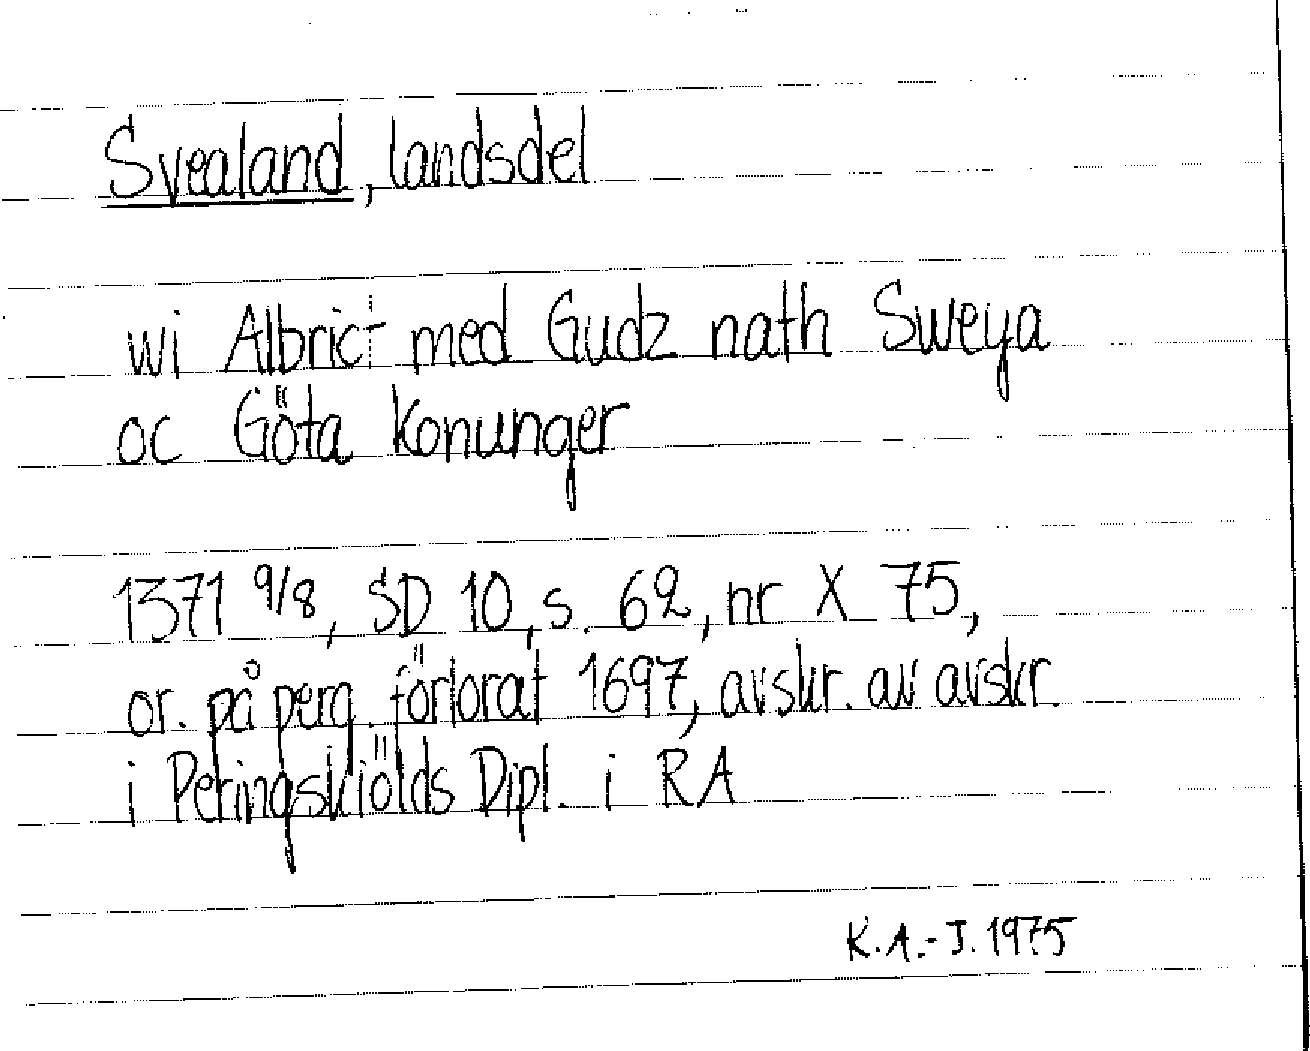 Svealand, landsdel
wi Albrict med Gudz nath Sweya
oc Göta Konunger
1371 9/8, SD 10, s. 62, nr X 75,
or. på perg. förlorat 1697, avskr. av avskr.
i Peringskiölds Dipl. i RA
K.A.-J. 1975